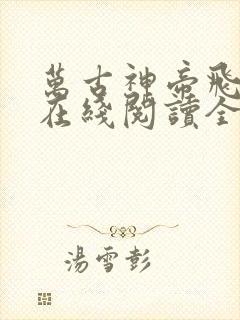 萬古神帝飛
在綫閱讀全
湯雪彭